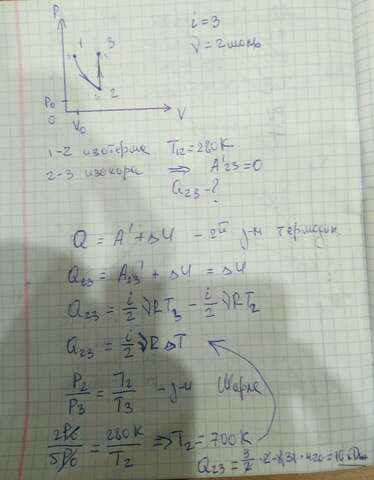 P
i = 3
1 3
ν = 2 моль
2
P₀
0 V₀ V
1-2 изотерма T₁₂ = 280K
2-3 изохора ⟹ A'₂₃ = 0
Q₂₃ - ?
Q = A' + ΔU - 2й з-н термодин
Q₂₃ = A₂₃' + ΔU = ΔU
Q₂₃ = i/2 νRT₃ - i/2 νRT₂
Q₂₃ = i/2 νRΔT
P₂/P₃ = T₂/T₃ - з-н Шарля
2P₀/5P₀ = 280K/T₂ ⟹ T₂ = 700K
Q₂₃ = 3/2 · 2 · 8,31 · 420 = 10 кДж